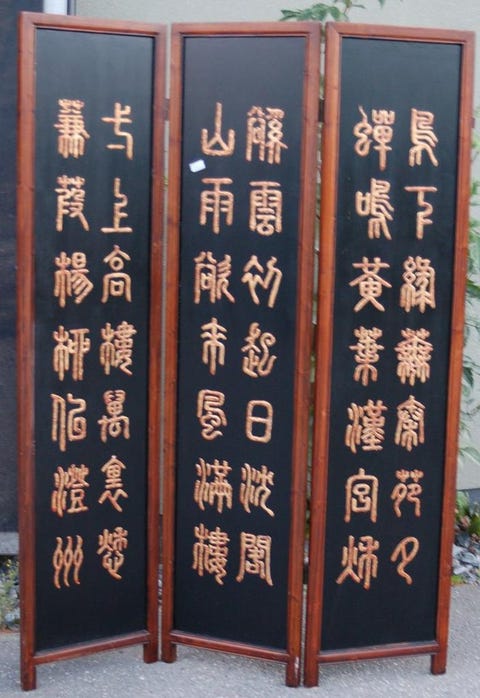 鳥下綠蕪秦苑夕
蟬鳴黃葉漢宮秋
谿雲初起日沈閣
山雨欲來風滿樓
弌上高樓萬里愁
蒹葭楊柳似澄州